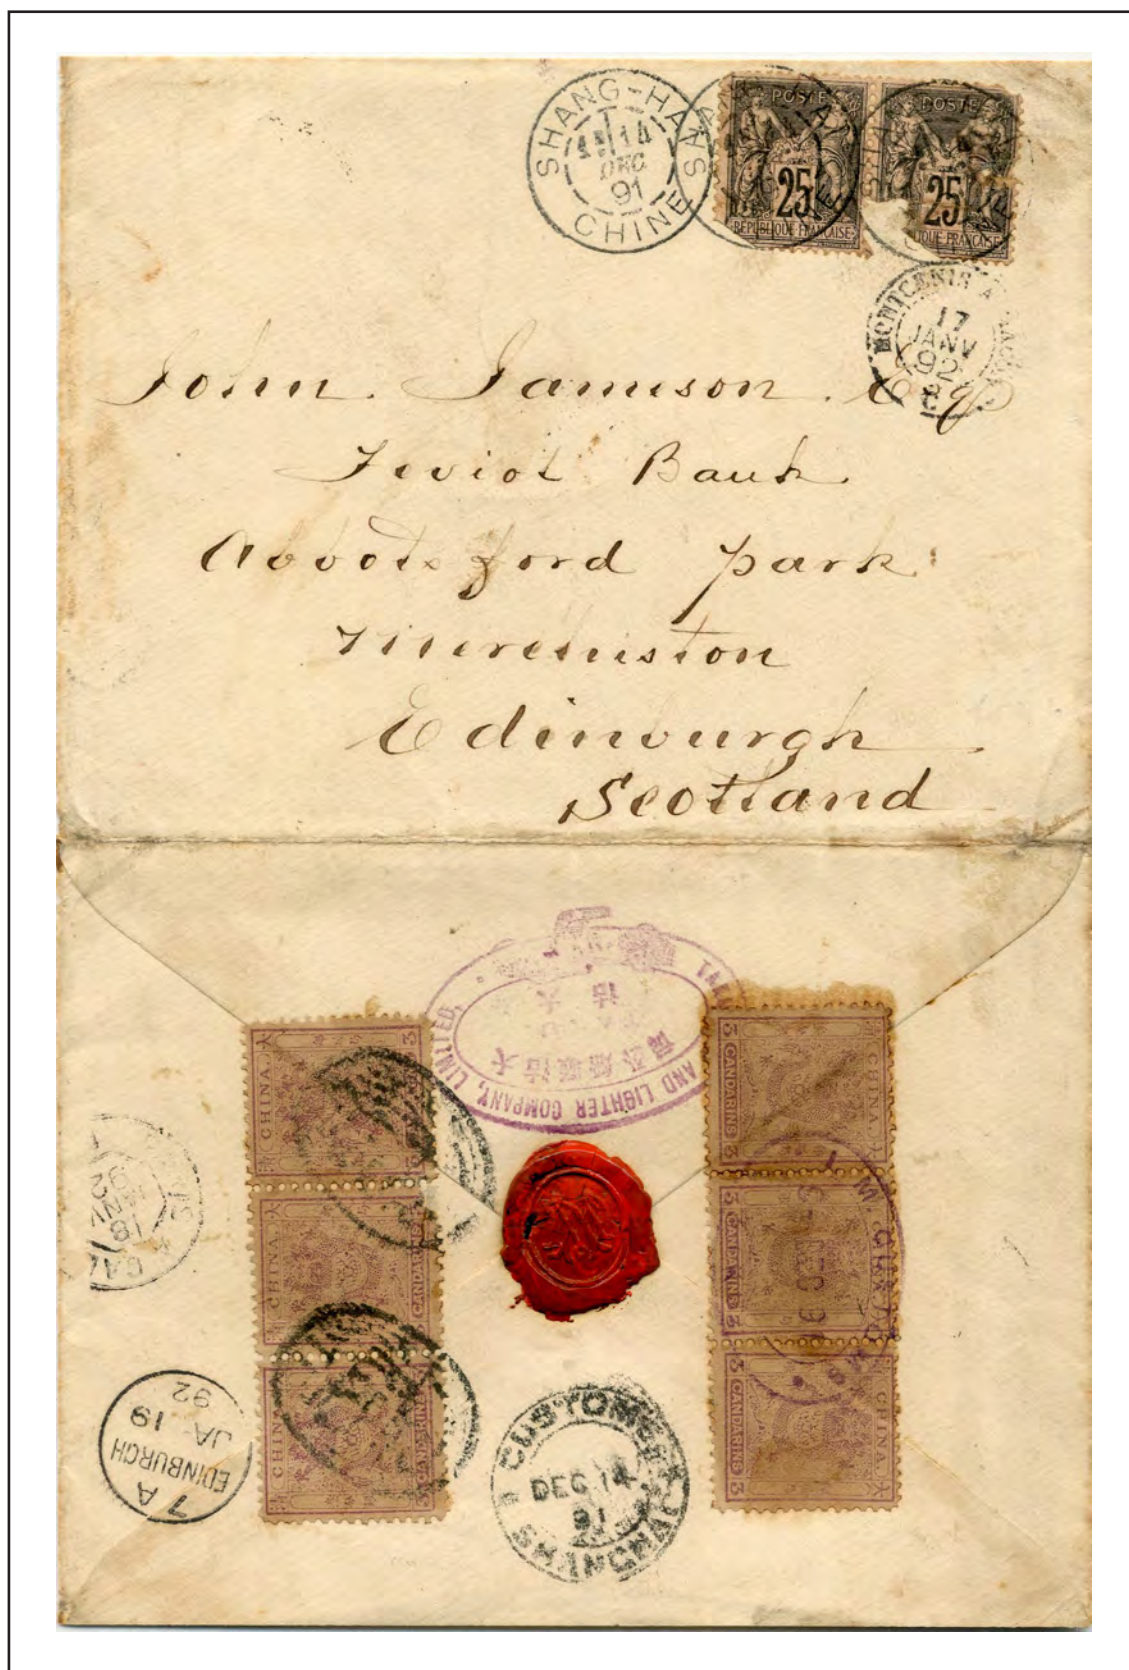 SHANG-HAI
14
DEC
91
CHINE
POSTE
25
REPUBLIQUE FRANÇAISE
POSTE
25
FRANÇAISE
17
JANV
92
John Jamieson Esq
Teviot Bank
Abbotsford Park
Merchiston
Edinburgh
Scotland
AND LIGHTER COMPANY, LIMITED.
CHINA
3
CHINA
CANDARINS
CHINA
3
CANDARINS
3
CANDARINS
3
CHINA
3
CANDARINS
3
3
CANDARINS
3
CHINA
18
JANV
92
7 A
EDINBURGH
JA 19
92
CUSTOMS
DEC 14
91
SHANGHAI